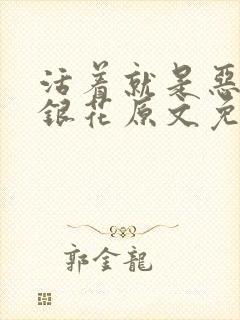 活着就是惡
銀花原文免
郭金龍